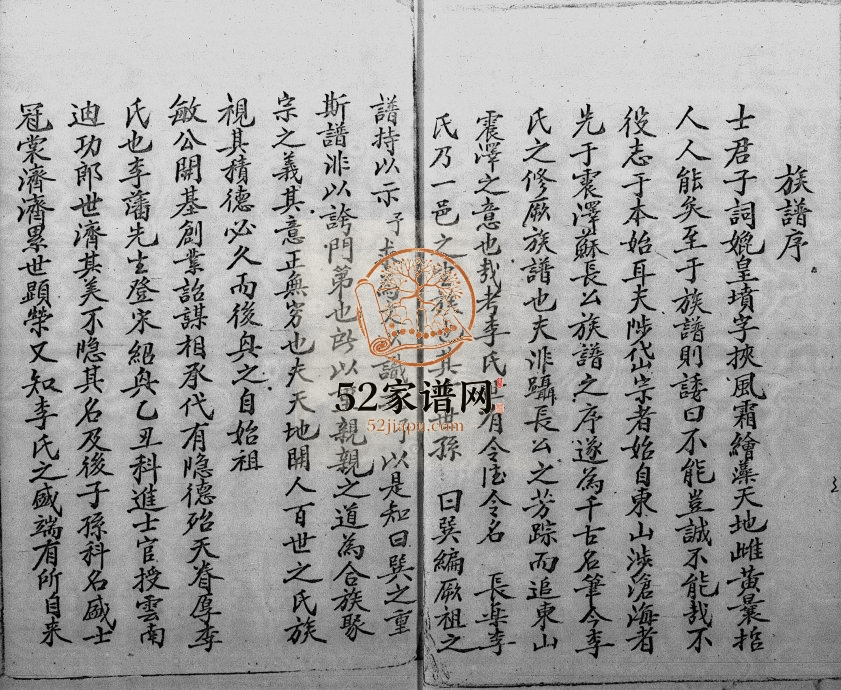 族譜序
士君子詞娩皇墳字挾風霜繪藻天地雌黃曩括
人人能矣至于族譜則諉曰不能豈誠不能哉不
役志于本始耳夫陟岱宗者始自東山涉滄海者
先于震澤蘇長公族譜之序遂為千古名筆今李
氏之修厥族譜也夫非躡長公之芳踪而追東山
震澤之意也哉考李氏有令德令名 長樂李
氏乃一邑之族也其孫 曰巽編厥祖之
譜持以示予為文以識以是知曰巽之重
斯譜非以誇門第也所以親親之道為合族聚
宗之義其意正無窮也夫天地開人百世之氏族
視其積德必久而後與之自始祖
敏公開基創業詒謀相承代有隐德殆天眷厚李
氏也李藩先生登宋紹興乙丑科進士官授雲南
迪功郎世濟其美不隐其名及後子孫科名盛士
冠裳濟濟累世顯榮又知李氏之盛端有所自来
52家谱网
52jiapu.com